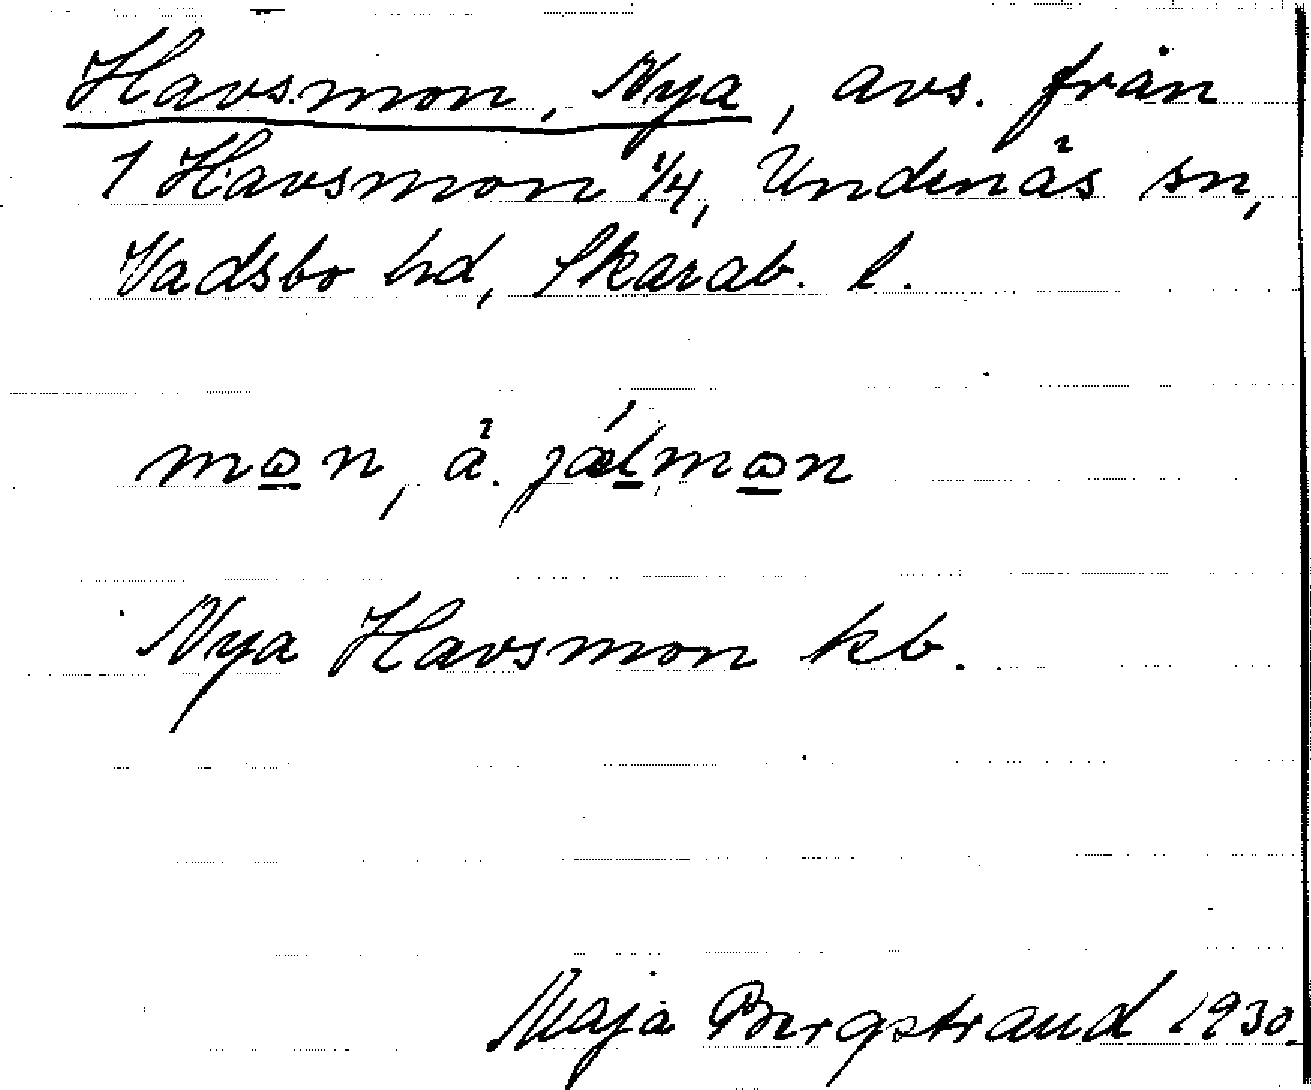 Havsmon, Nya, avs. från
1 Havsmon 1/4, Undenäs sn,
Vadsbo hd, Skarab. l.
mon, å. jálmon
Nya Havsmon kb.
Maja Bergstrand 1930.